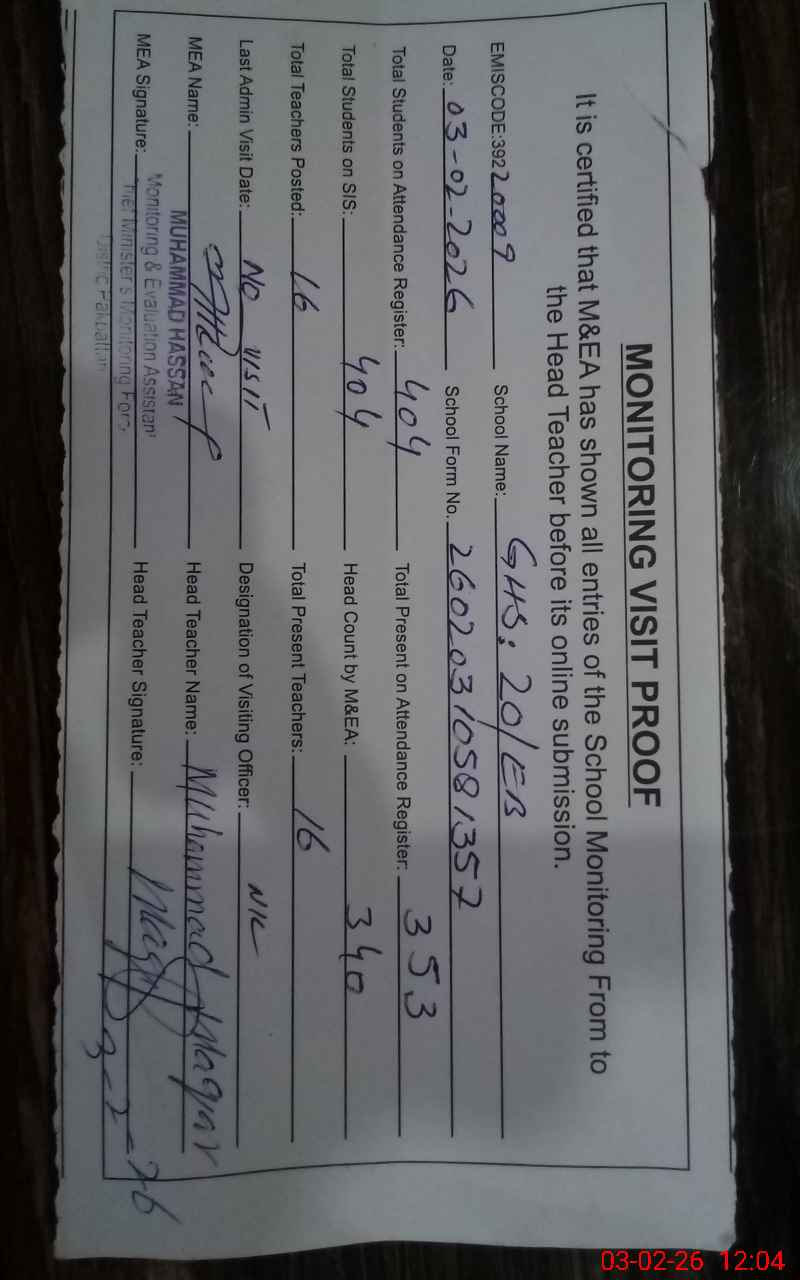 MONITORING VISIT PROOF
It is certified that M&EA has shown all entries of the School Monitoring From to
the Head Teacher before its online submission.
EMISCODE:39220009 School Name: GHS: 20/EB
Date: 03-02-2026 School Form No. 26020310581357
Total Students on Attendance Register: 404 Total Present on Attendance Register: 353
Total Students on SIS: 404 Head Count by M&EA: 340
Total Teachers Posted: 16 Total Present Teachers: 16
Last Admin Visit Date: NO VISIT Designation of Visiting Officer: NIL
MEA Name: Head Teacher Name: Muhammad
MUHAMMAD HASSAN
MEA Signature: Head Teacher Signature:
Monitoring & Evaluation Assistan
Minister's Monitoring Forc
Pakpattan
03-02-26 12:04